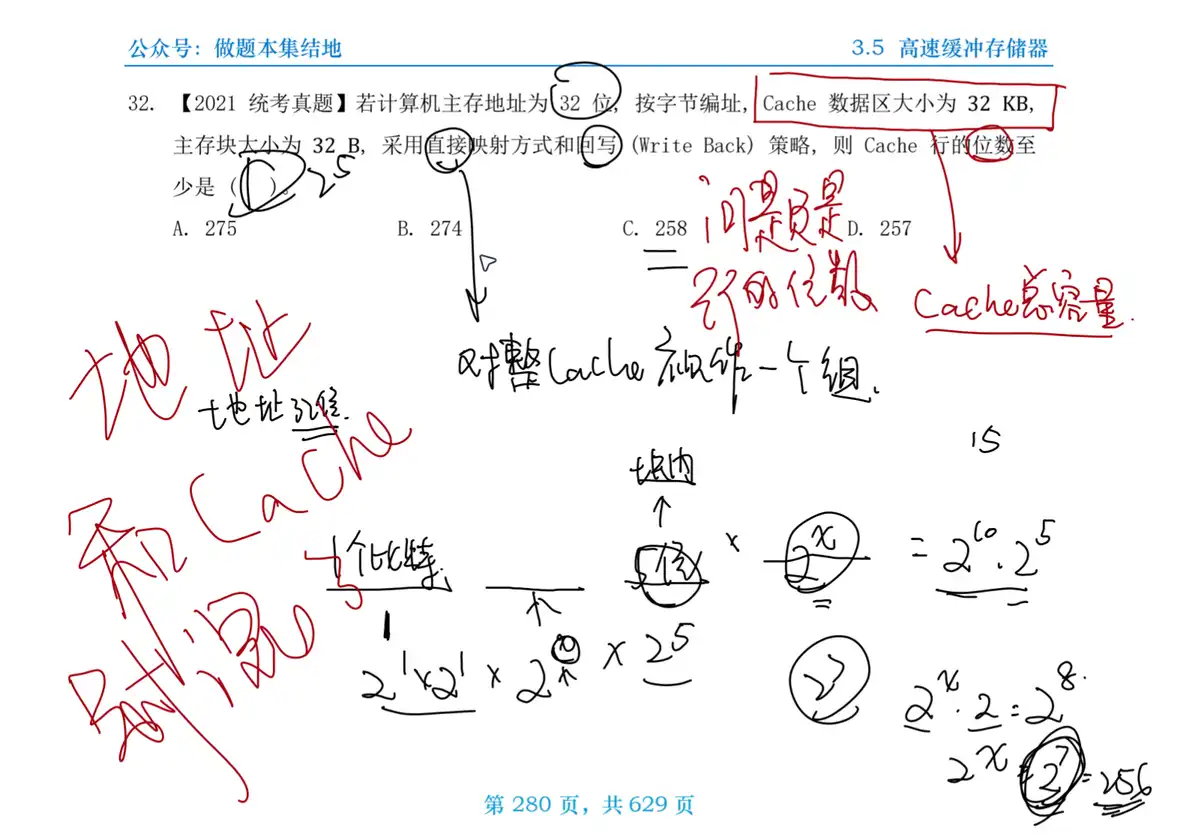 公众号：做题本集结地 3.5 高速缓冲存储器
32. 【2021 统考真题】若计算机主存地址为 32 位，按字节编址，Cache 数据区大小为 32 KB，
主存块大小为 32 B，采用直接映射方式和回写 (Write Back) 策略，则 Cache 行的位数至
少是（ ）。
2^5
A. 275 B. 274 C. 258 D. 257
问题是
行的位数
Cache总容量.
地址
对整Cache 一个组.
地址 32位.
和Cache
15
块内
个比特
5位 × 2^x = 2^10 · 2^5
1
2^1 × 2^1 × 2 × 2^5
2^x · 2 = 2^8
2^x = 2^7 = 256
第 280 页，共 629 页